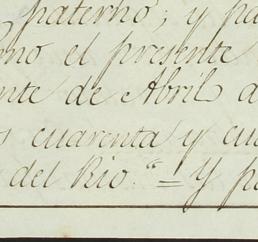 paterno; y pa
mo el presente
nte de Abril a
s cuarenta y cua
del Rio." = Y pa